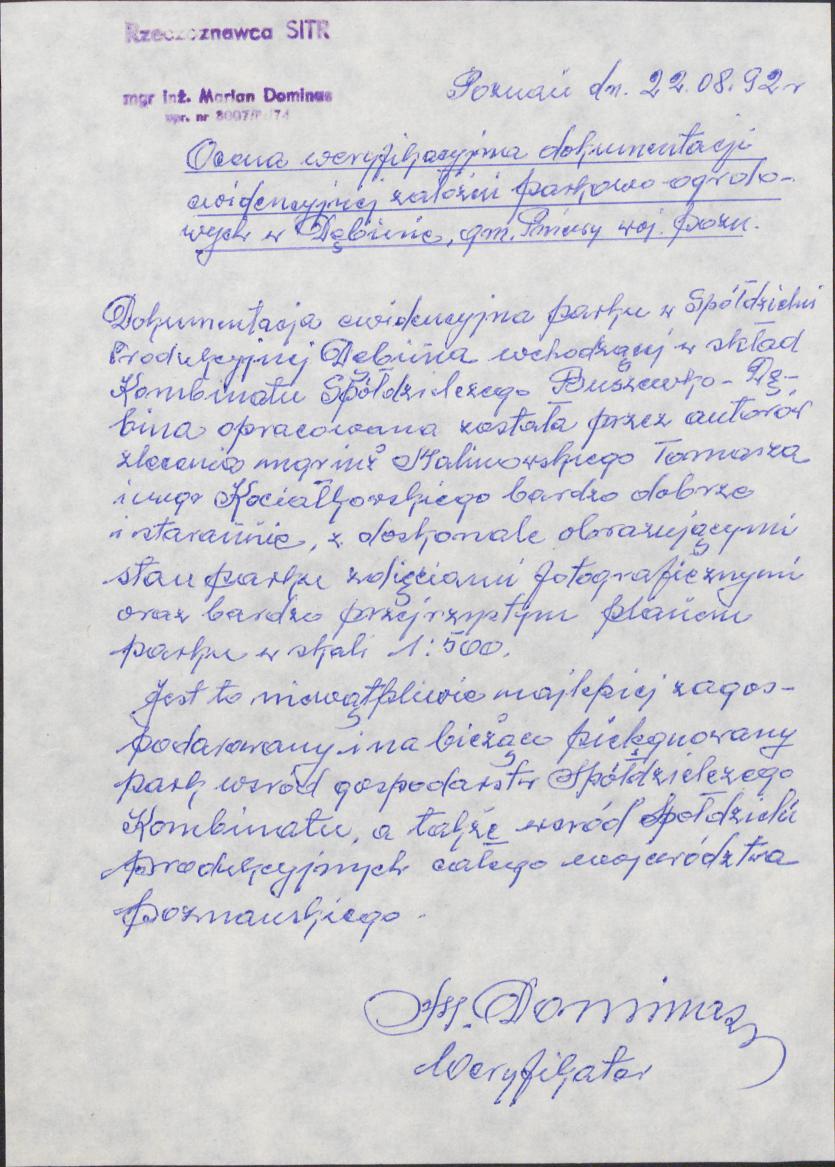 Rzeczoznawca SITR
mgr inż. Marian Dominas
upr. nr 8007/ /74
Poznań dn. 22.08.92 r
Ocena weryfikacyjna dokumentacji
ewidencyjnej założeń parkowo-ogrodo-
wych w Dębinie, gm. Pniewy woj. pozn.
Dokumentacja ewidencyjna parku w Spółdzielni
Produkcyjnej Dębina wchodzącej w skład
Kombinatu Spółdzielczego Buszewko - Dę-
bina opracowana została przez autorów
zlecenia mgr inż Malinowskiego Tomasza
i mgr Kociałkowskiego bardzo dobrze
i starannie, z doskonale obrazującymi
stan parku zdjęciami fotograficznymi
oraz bardzo przejrzystym planem
parku w skali 1:500.
Jest to niewątpliwie najlepiej zagos-
podarowany i na bieżąco pielęgnowany
park wśród gospodarstw Spółdzielczego
Kombinatu, a także wśród Spółdzielni
Produkcyjnych całego województwa
poznańskiego.
M. Dominas
Weryfikator